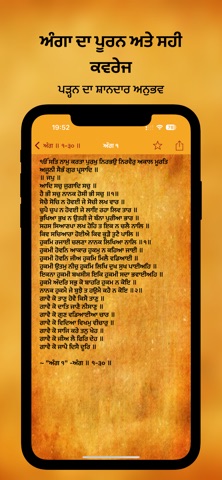 ਅੰਗਾ ਦਾ ਪੂਰਨ ਅਤੇ ਸਹੀ
ਕਵਰੇਜ
ਪੜ੍ਹਨ ਦਾ ਸ਼ਾਨਦਾਰ ਅਨੁਭਵ
19:52
ਅੰਗ ॥ ੧-੩੦ ॥
ਅੰਗ ੧
ੴ ਸਤਿ ਨਾਮੁ ਕਰਤਾ ਪੁਰਖੁ ਨਿਰਭਉ ਨਿਰਵੈਰੁ ਅਕਾਲ ਮੂਰਤਿ
ਅਜੂਨੀ ਸੈਭੰ ਗੁਰ ਪ੍ਰਸਾਦਿ ॥
॥ ਜਪੁ ॥
ਆਦਿ ਸਚੁ ਜੁਗਾਦਿ ਸਚੁ ॥
ਹੈ ਭੀ ਸਚੁ ਨਾਨਕ ਹੋਸੀ ਭੀ ਸਚੁ ॥੧॥
ਸੋਚੈ ਸੋਚਿ ਨ ਹੋਵਈ ਜੇ ਸੋਚੀ ਲਖ ਵਾਰ ॥
ਚੁਪੈ ਚੁਪ ਨ ਹੋਵਈ ਜੇ ਲਾਇ ਰਹਾ ਲਿਵ ਤਾਰ ॥
ਭੁਖਿਆ ਭੁਖ ਨ ਉਤਰੀ ਜੇ ਬੰਨਾ ਪੁਰੀਆ ਭਾਰ ॥
ਸਹਸ ਸਿਆਣਪਾ ਲਖ ਹੋਹਿ ਤ ਇਕ ਨ ਚਲੈ ਨਾਲਿ ॥
ਕਿਵ ਸਚਿਆਰਾ ਹੋਈਐ ਕਿਵ ਕੂੜੈ ਤੁਟੈ ਪਾਲਿ ॥
ਹੁਕਮਿ ਰਜਾਈ ਚਲਣਾ ਨਾਨਕ ਲਿਖਿਆ ਨਾਲਿ ॥੧॥
ਹੁਕਮੀ ਹੋਵਨਿ ਆਕਾਰ ਹੁਕਮੁ ਨ ਕਹਿਆ ਜਾਈ ॥
ਹੁਕਮੀ ਹੋਵਨਿ ਜੀਅ ਹੁਕਮਿ ਮਿਲੈ ਵਡਿਆਈ ॥
ਹੁਕਮੀ ਉਤਮੁ ਨੀਚੁ ਹੁਕਮਿ ਲਿਖਿ ਦੁਖ ਸੁਖ ਪਾਈਅਹਿ ॥
ਇਕਨਾ ਹੁਕਮੀ ਬਖਸੀਸ ਇਕਿ ਹੁਕਮੀ ਸਦਾ ਭਵਾਈਅਹਿ ॥
ਹੁਕਮੈ ਅੰਦਰਿ ਸਭੁ ਕੋ ਬਾਹਰਿ ਹੁਕਮ ਨ ਕੋਇ ॥
ਨਾਨਕ ਹੁਕਮੈ ਜੇ ਬੁਝੈ ਤ ਹਉਮੈ ਕਹੈ ਨ ਕੋਇ ॥੨॥
ਗਾਵੈ ਕੋ ਤਾਣੁ ਹੋਵੈ ਕਿਸੈ ਤਾਣੁ ॥
ਗਾਵੈ ਕੋ ਦਾਤਿ ਜਾਣੈ ਨੀਸਾਣੁ ॥
ਗਾਵੈ ਕੋ ਗੁਣ ਵਡਿਆਈਆ ਚਾਰ ॥
ਗਾਵੈ ਕੋ ਵਿਦਿਆ ਵਿਖਮੁ ਵੀਚਾਰੁ ॥
ਗਾਵੈ ਕੋ ਸਾਜਿ ਕਰੇ ਤਨੁ ਖੇਹ ॥
ਗਾਵੈ ਕੋ ਜੀਅ ਲੈ ਫਿਰਿ ਦੇਹ ॥
ਗਾਵੈ ਕੋ ਜਾਪੈ ਦਿਸੈ ਦੂਰਿ ॥
~ "ਅੰਗ ੧" -ਅੰਗ ॥ ੧-੩੦ ॥